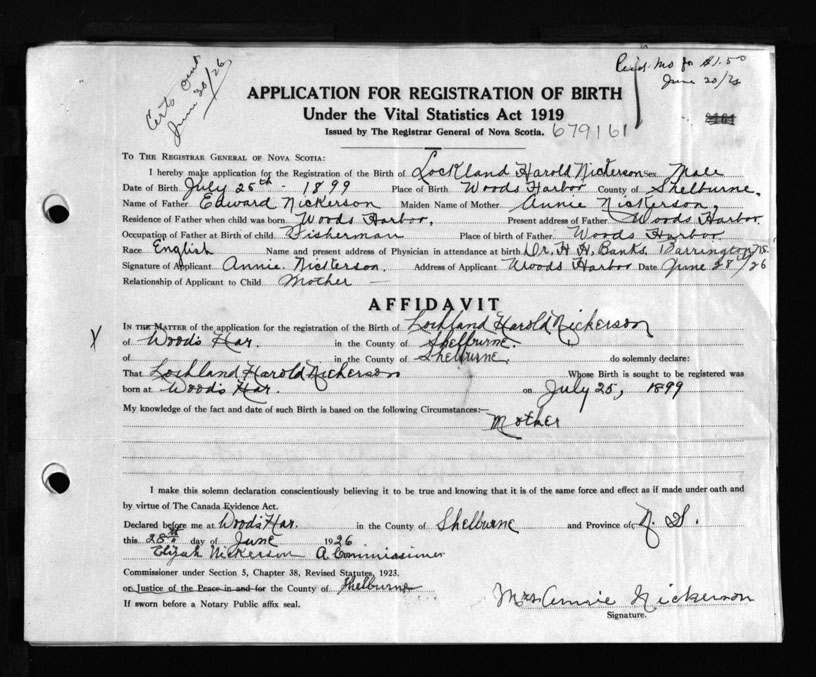 Certs out
June 30/26
Recd. MO for $1.50
June 30/26
APPLICATION FOR REGISTRATION OF BIRTH
Under the Vital Statistics Act 1919
Issued by The Registrar General of Nova Scotia. 679161
TO THE REGISTRAR GENERAL OF NOVA SCOTIA:
I hereby make application for the Registration of the Birth of Lockland Harold Nickerson Sex Male
Date of Birth July 25th - 1899 Place of Birth Woods Harbor County of Shelburne.
Name of Father Edward Nickerson Maiden Name of Mother Annie Nickerson,
Residence of Father when child was born Woods Harbor, Present address of Father Woods Harbor.
Occupation of Father at Birth of child. Fisherman Place of birth of Father Woods Harbor
Race English Name and present address of Physician in attendance at birth Dr. H. H. Banks, Barrington N.S.
Signature of Applicant Annie. Nickerson. Address of Applicant Woods Harbor Date June 28th/26
Relationship of Applicant to Child Mother
AFFIDAVIT
IN THE MATTER of the application for the registration of the Birth of Lochland Harold Nickerson
X of Wood's Har. in the County of Shelburne.
of in the County of Shelburne. do solemnly declare:
That Lochland Harold Nickerson Whose Birth is sought to be registered was
born at Wood's Har. on July 25, 1899
My knowledge of the fact and date of such Birth is based on the following Circumstances:—
Mother
I make this solemn declaration conscientiously believing it to be true and knowing that it is of the same force and effect as if made under oath and
by virtue of The Canada Evidence Act.
Declared before me at Wood's Har. in the County of Shelburne and Province of N. S.
this 28th day of June 1926
Elijah Nickerson A Commissioner
Commissioner under Section 5, Chapter 38, Revised Statutes, 1923.
or Justice of the Peace in and for the County of Shelburne
If sworn before a Notary Public affix seal.
Mrs Annie Nickerson
Signature.